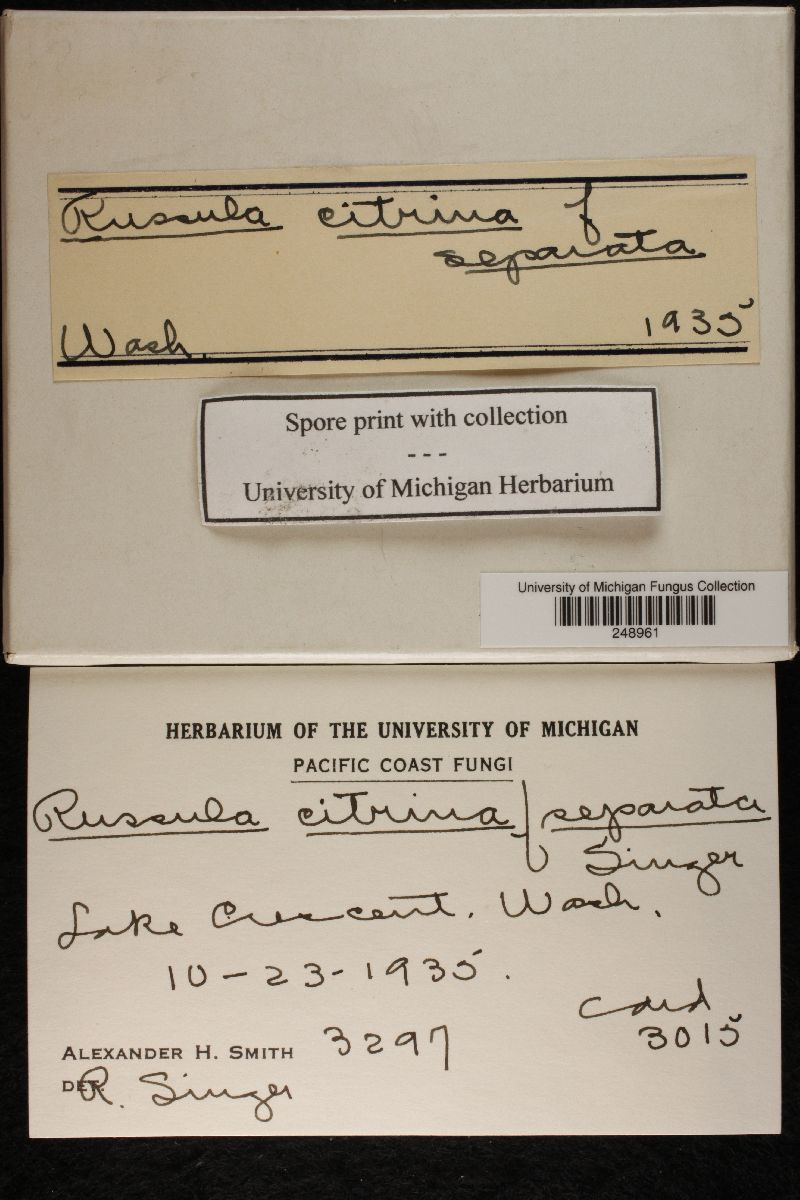 Russula citrina f
separata
Wash. 1935
Spore print with collection
---
University of Michigan Herbarium
University of Michigan Fungus Collection
248961
HERBARIUM OF THE UNIVERSITY OF MICHIGAN
PACIFIC COAST FUNGI
Russula citrina f separata
Singer
Lake Crescent, Wash.
10-23-1935.
card
ALEXANDER H. SMITH 3297 3015
DET. R. Singer